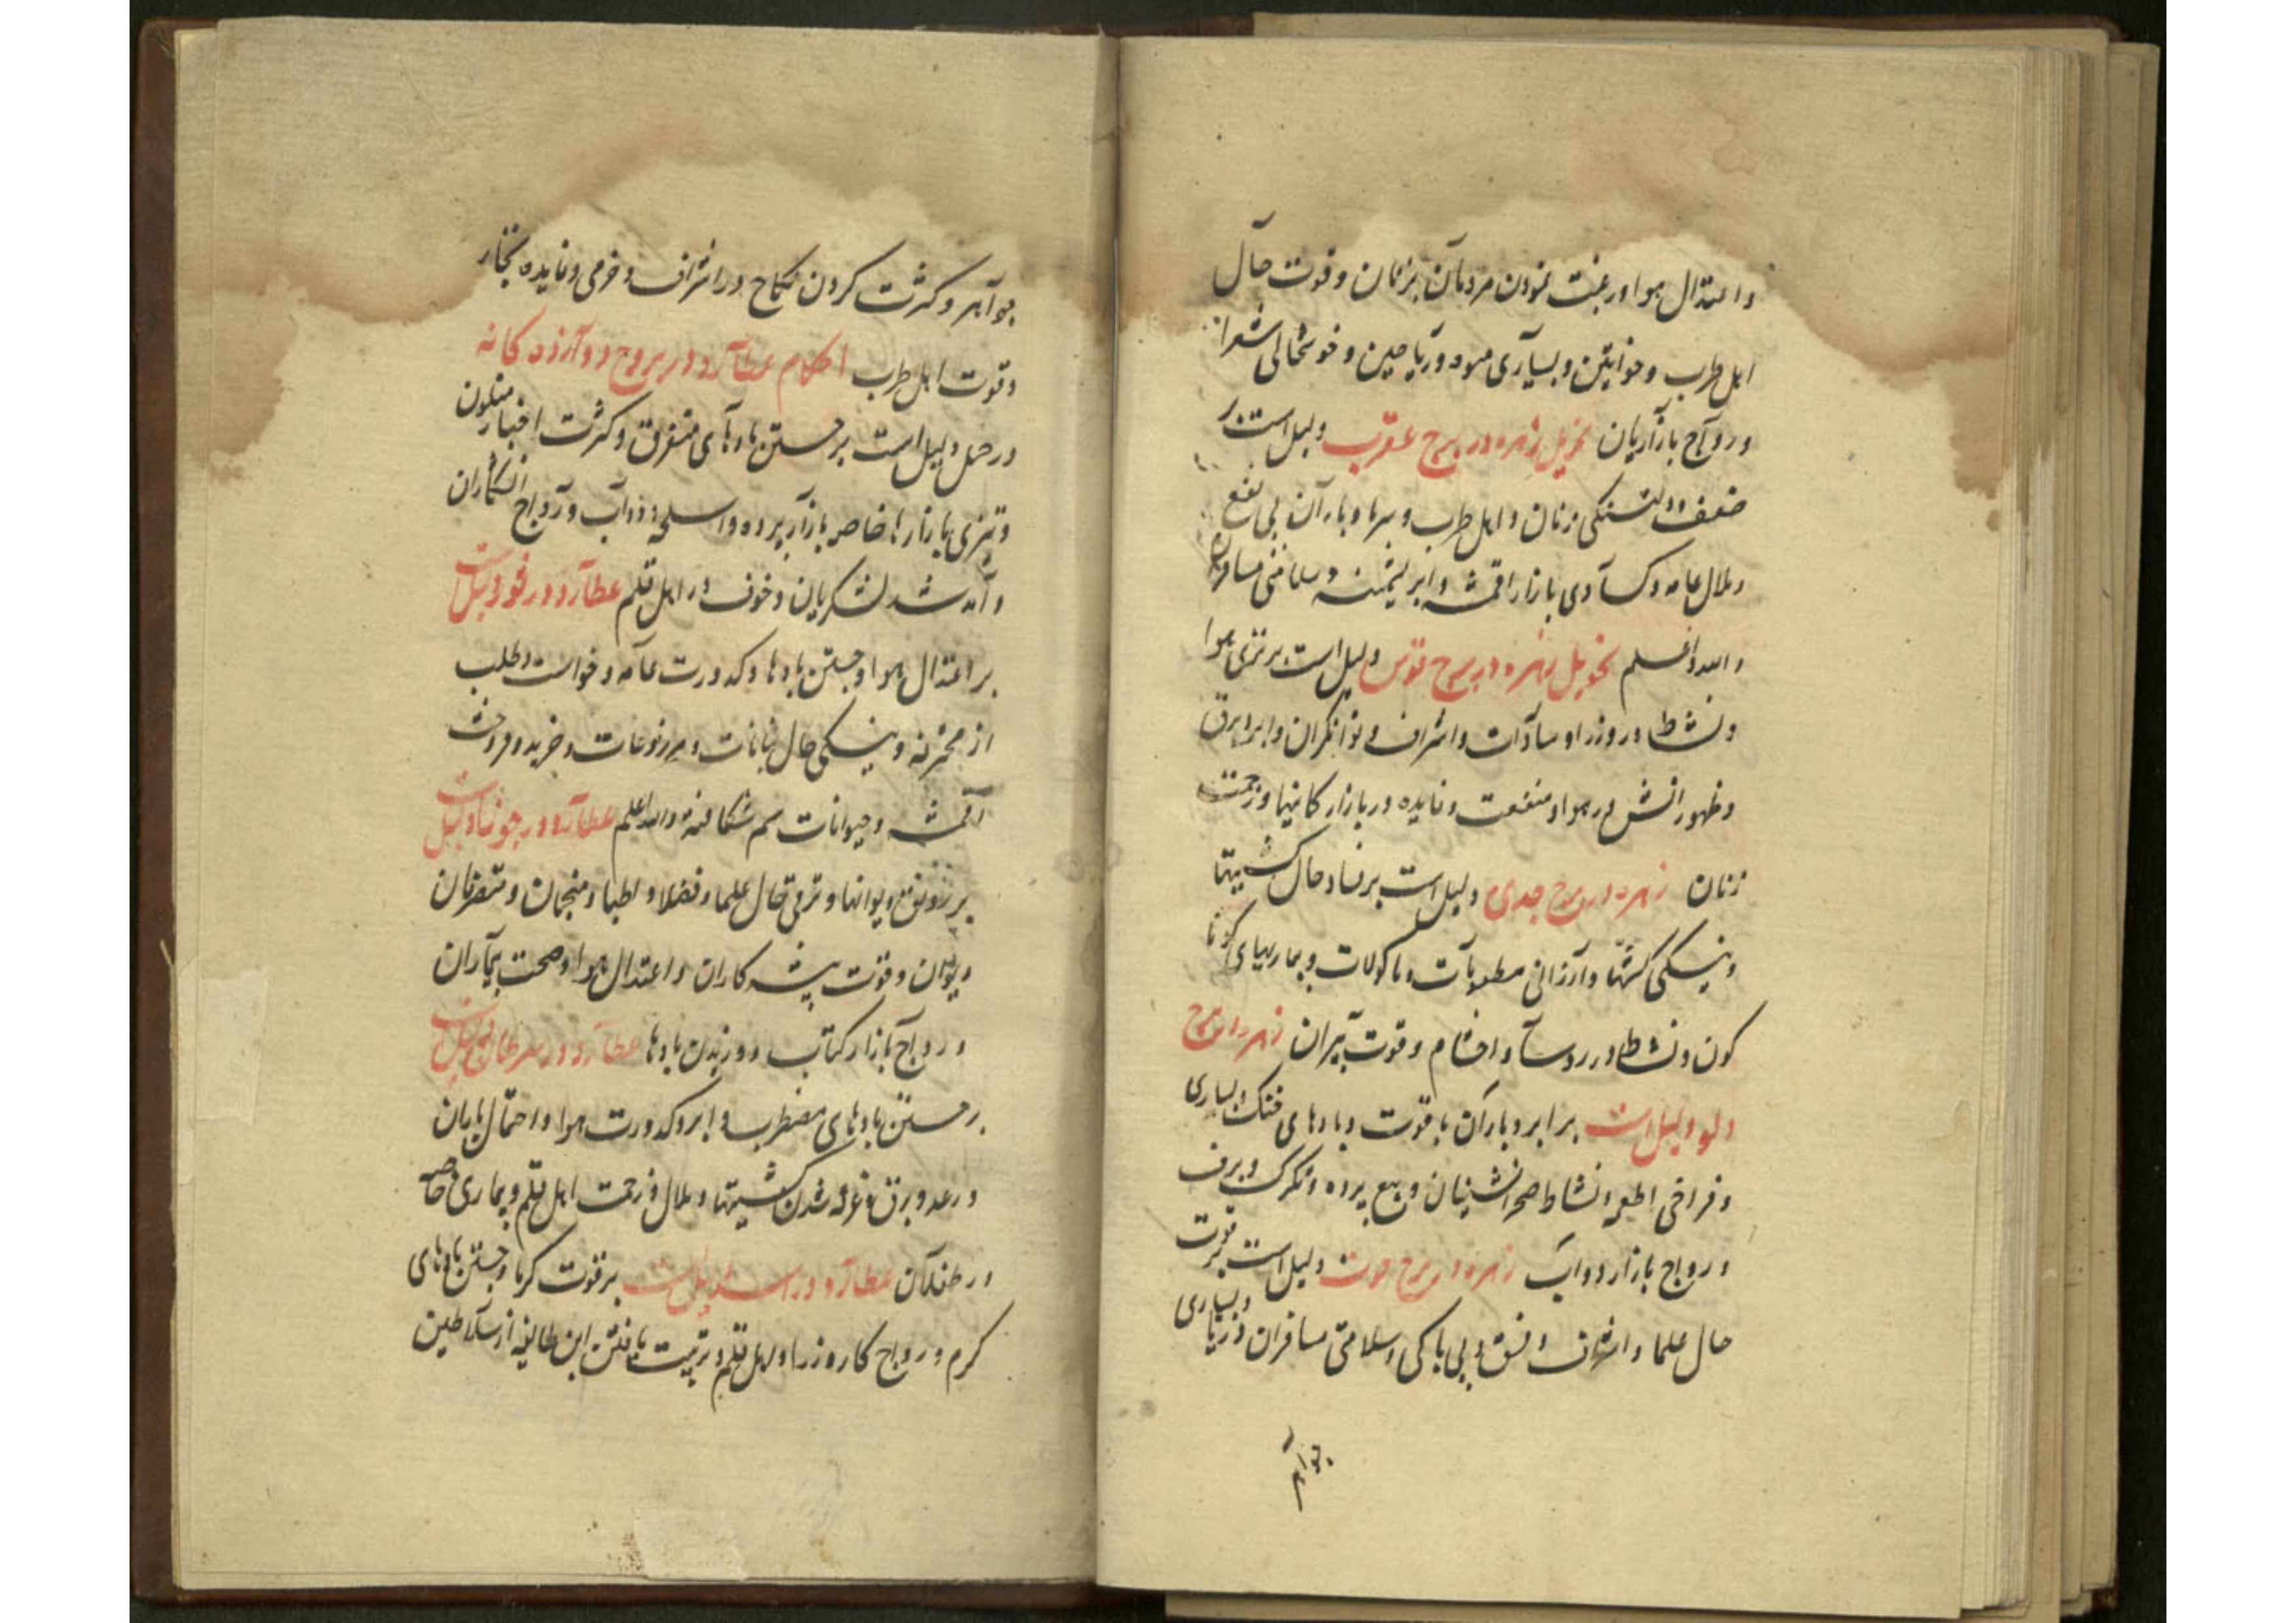 و اعتدال هوا و رغبت نمودن مردمان بزنان و قوت حال
اهل طرب و خواتین و بسیاری میوه و ریاحین و خوشحالی شعرا
و رواج بازاریان تحویل زهره در برج عقرب دلیل است بر
ضعف و دلتنگی زنان و اهل طرب و سرما و باران بی نفع
و ملال عامه و کسادی بازار اقمشه و ابریشمینه و سلامتی مسافران
والله اعلم تحویل زهره در برج قوس دلیل است بر تری هوا
و نشاط در وزرا و سادات و اشراف و توانگران و ابر و برق
و ظهور آتش در هوا و منفعت و فایده در بازار کانیها و زحمت
زنان زهره در برج جدی دلیل است بر فساد حال کشتیها
و نیکی کشتها و ارزانی مطعومات و ماکولات و بیماریهای گونا
کون و نشاط در روسا و احشام و قوت پیران زهره در برج
دلو دلیل است بر ابر و باران با قوت و بادهای خنک و بسیاری
و فراخی اطعمه و نشاط صحرانشینان و بیع برده و تگرگ و برف
و رواج بازار دواب زهره در برج حوت دلیل است بر قوت
حال علما و اشراف و فسق و بی باکی و سلامتی مسافران دریا و بسیاری
جواهر
جواهر و کثرت کردن نکاح در اشراف و خرمی و فایده تجار
و قوت اهل طرب احکام عطارد در بروج دوازده کانه
در حمل دلیل است بر جستن بادهای متفرق و کثرت اخبار متلون
و تیزی بازارها خاصه بازار برده و اسلحه و دواب و رواج
و آمد شد لشکریان و خوف در اهل قلم عطارد در ثور دلیل است
بر اعتدال هوا و جستن بادها و کدورت عامه و خواست و طلب
از خزینه و نیکی حال نباتات و مزروعات و خرید و فروخت
اقمشه و حیوانات سم شکافته والله اعلم عطارد در جوزا دلیل است
بر رونق دیوانها و ترقی حال علما و فضلا و اطبا و منجمان و متصرفان
دیوان و قوت پیشه کاران و اعتدال هوا و صحت بیماران
و رواج بازار کتاب و وزیدن بادها عطارد در سرطان دلیل است
بر جستن بادهای مضطرب و ابر و کدورت هوا و احتمال باران
و رعد و برق و غرقه شدن کشتیها و ملال و زحمت اهل قلم و بیماری خاصه
در طفلان عطارد در اسد دلیل است بر قوت گرما و جستن بادهای
گرم و رواج کار وزرا و اهل قلم و تربیت یافتن این طایفه از سلاطین